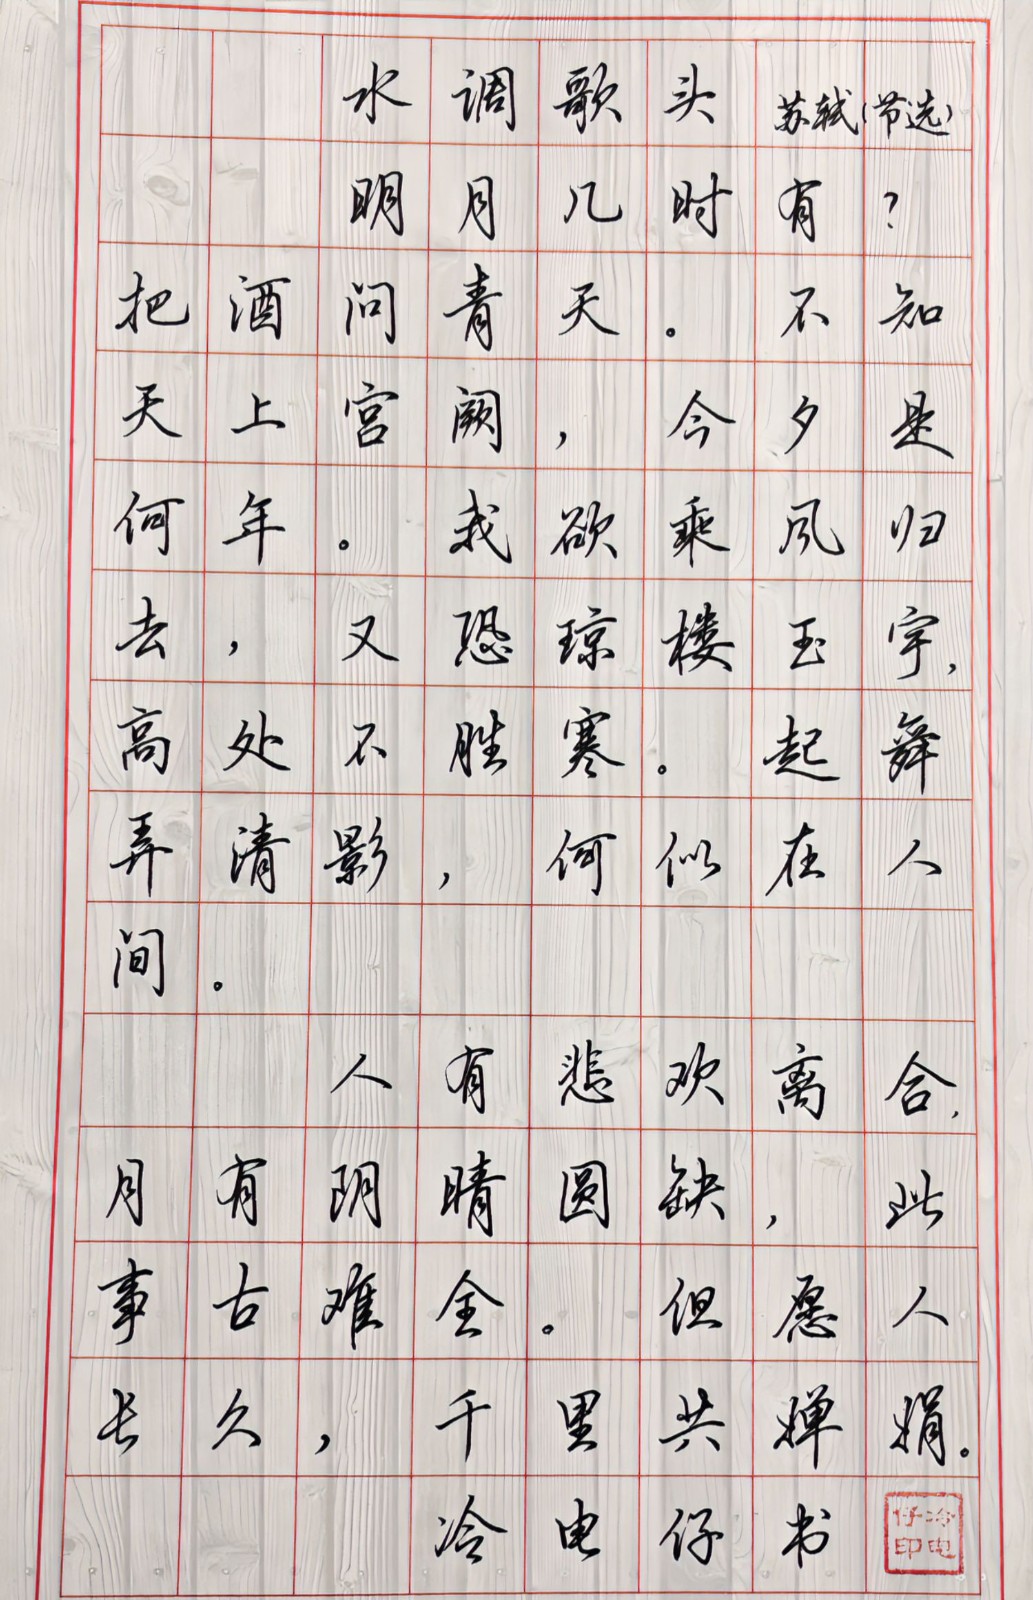 水调歌头 苏轼(节选)
明月几时有?
把酒问青天。不知
天上宫阙,今夕是
何年。我欲乘风归
去,又恐琼楼玉宇,
高处不胜寒。起舞
弄清影,何似在人
间。
人有悲欢离合,
月有阴晴圆缺,此
事古难全。但愿人
长久,千里共婵娟。
冷电仔书
冷电仔印